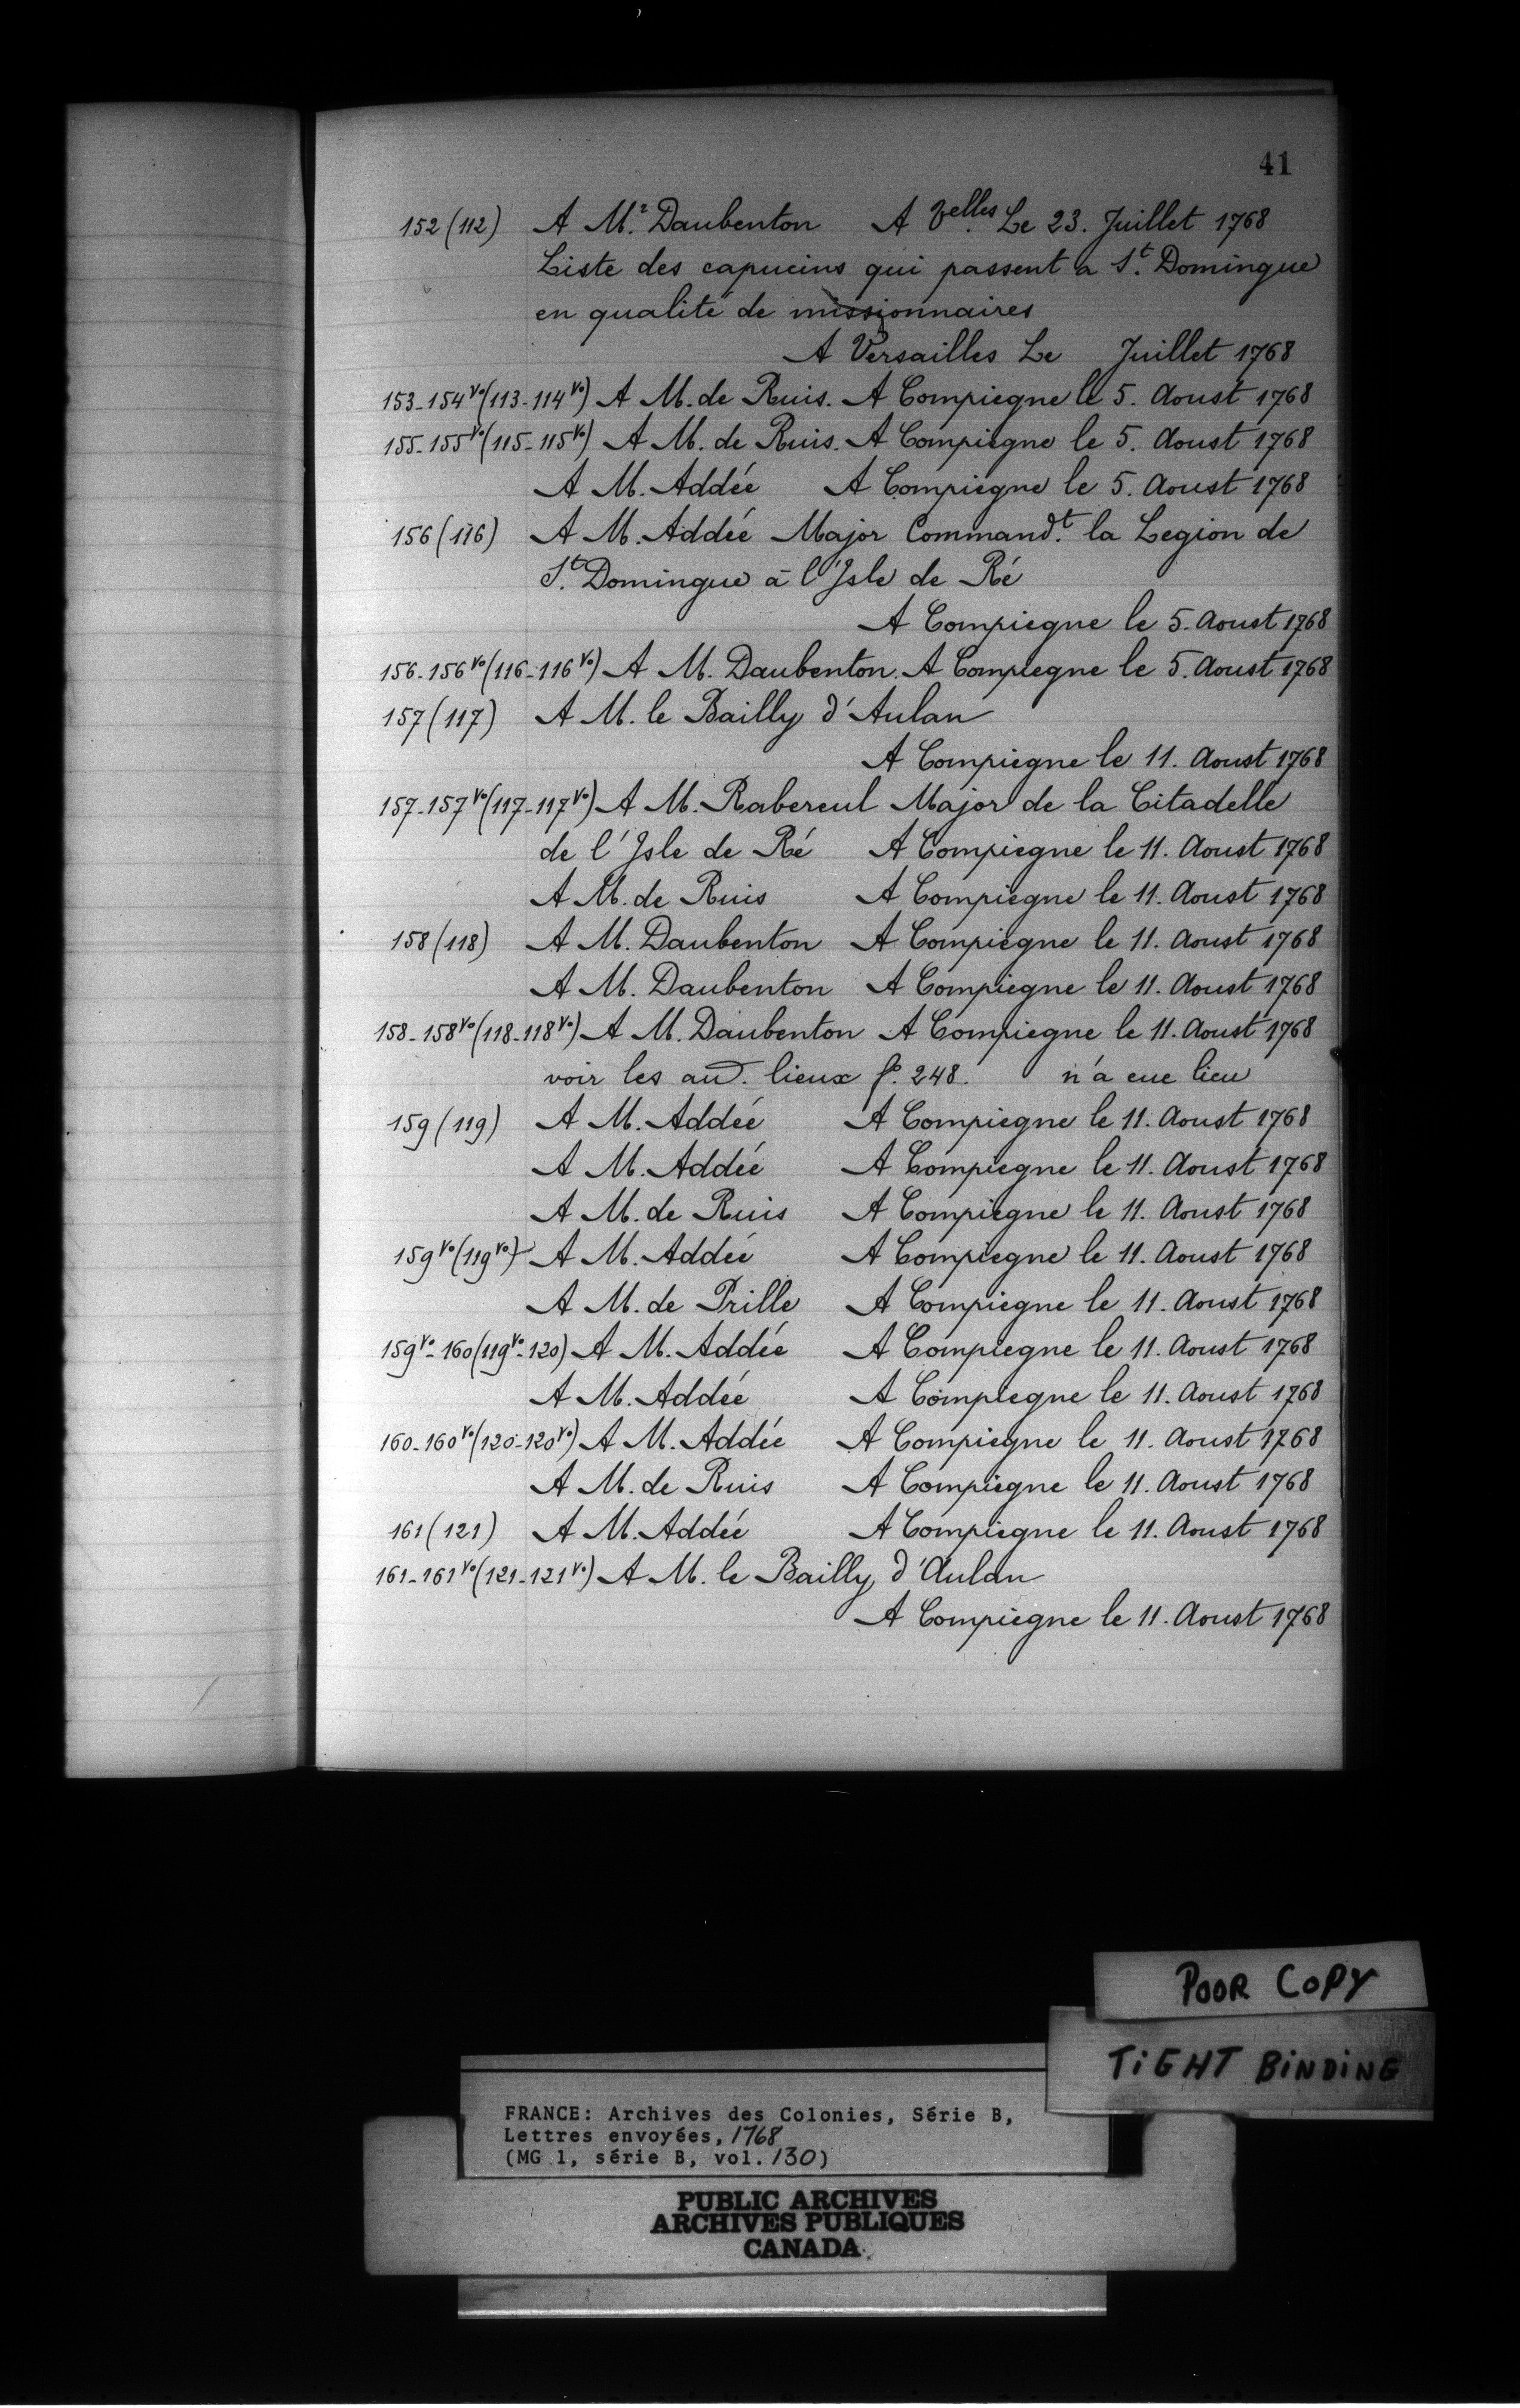 41
152 (112) A M.r Daubenton A Velles. Le 23. Juillet 1768
Liste des capucins qui passent a St. Domingue
en qualité de missionnaires
A Versailles Le Juillet 1768
153-154vo (113-114vo) A M. de Ruis. A Compiegne le 5. Aoust 1768
155-155vo (115-115vo) A M. de Ruis. A Compiegne le 5. Aoust 1768
A M. Addée A Compiegne le 5. Aoust 1768
156 (116) A M. Addée Major Command.t la Legion de
St. Domingue à l'Isle de Ré
A Compiegne le 5. Aoust 1768
156-156vo (116-116vo) A M. Daubenton. A Compiegne le 5. Aoust 1768
157 (117) A M. le Bailly d'Aulan
A Compiegne le 11. Aoust 1768
157-157vo (117-117vo) A M. Rabereul Major de la Citadelle
de l'Isle de Ré A Compiegne le 11. Aoust 1768
A M. de Ruis A Compiegne le 11. Aoust 1768
158 (118) A M. Daubenton A Compiegne le 11. Aoust 1768
A M. Daubenton A Compiegne le 11. Aoust 1768
158-158vo (118-118vo) A M. Daubenton A Compiegne le 11. Aoust 1768
voir les lieux fo. 248. n'a eue lieu
159 (119) A M. Addée A Compiegne le 11. Aoust 1768
A M. Addée A Compiegne le 11. Aoust 1768
A M. de Ruis A Compiegne le 11. Aoust 1768
159vo (119vo) A M. Addée A Compiegne le 11. Aoust 1768
A M. de Prille A Compiegne le 11. Aoust 1768
159vo-160 (119vo-120) A M. Addée A Compiegne le 11. Aoust 1768
A M. Addée A Compiegne le 11. Aoust 1768
160-160vo (120-120vo) A M. Addée A Compiegne le 11. Aoust 1768
A M. de Ruis A Compiegne le 11. Aoust 1768
161 (121) A M. Addée A Compiegne le 11. Aoust 1768
161-161vo (121-121vo) A M. le Bailly d'Aulan
A Compiegne le 11. Aoust 1768
POOR COPY
TIGHT BINDING
FRANCE: Archives des Colonies, Série B,
Lettres envoyées, 1768
(MG 1, série B, vol. 130)
PUBLIC ARCHIVES
ARCHIVES PUBLIQUES
CANADA